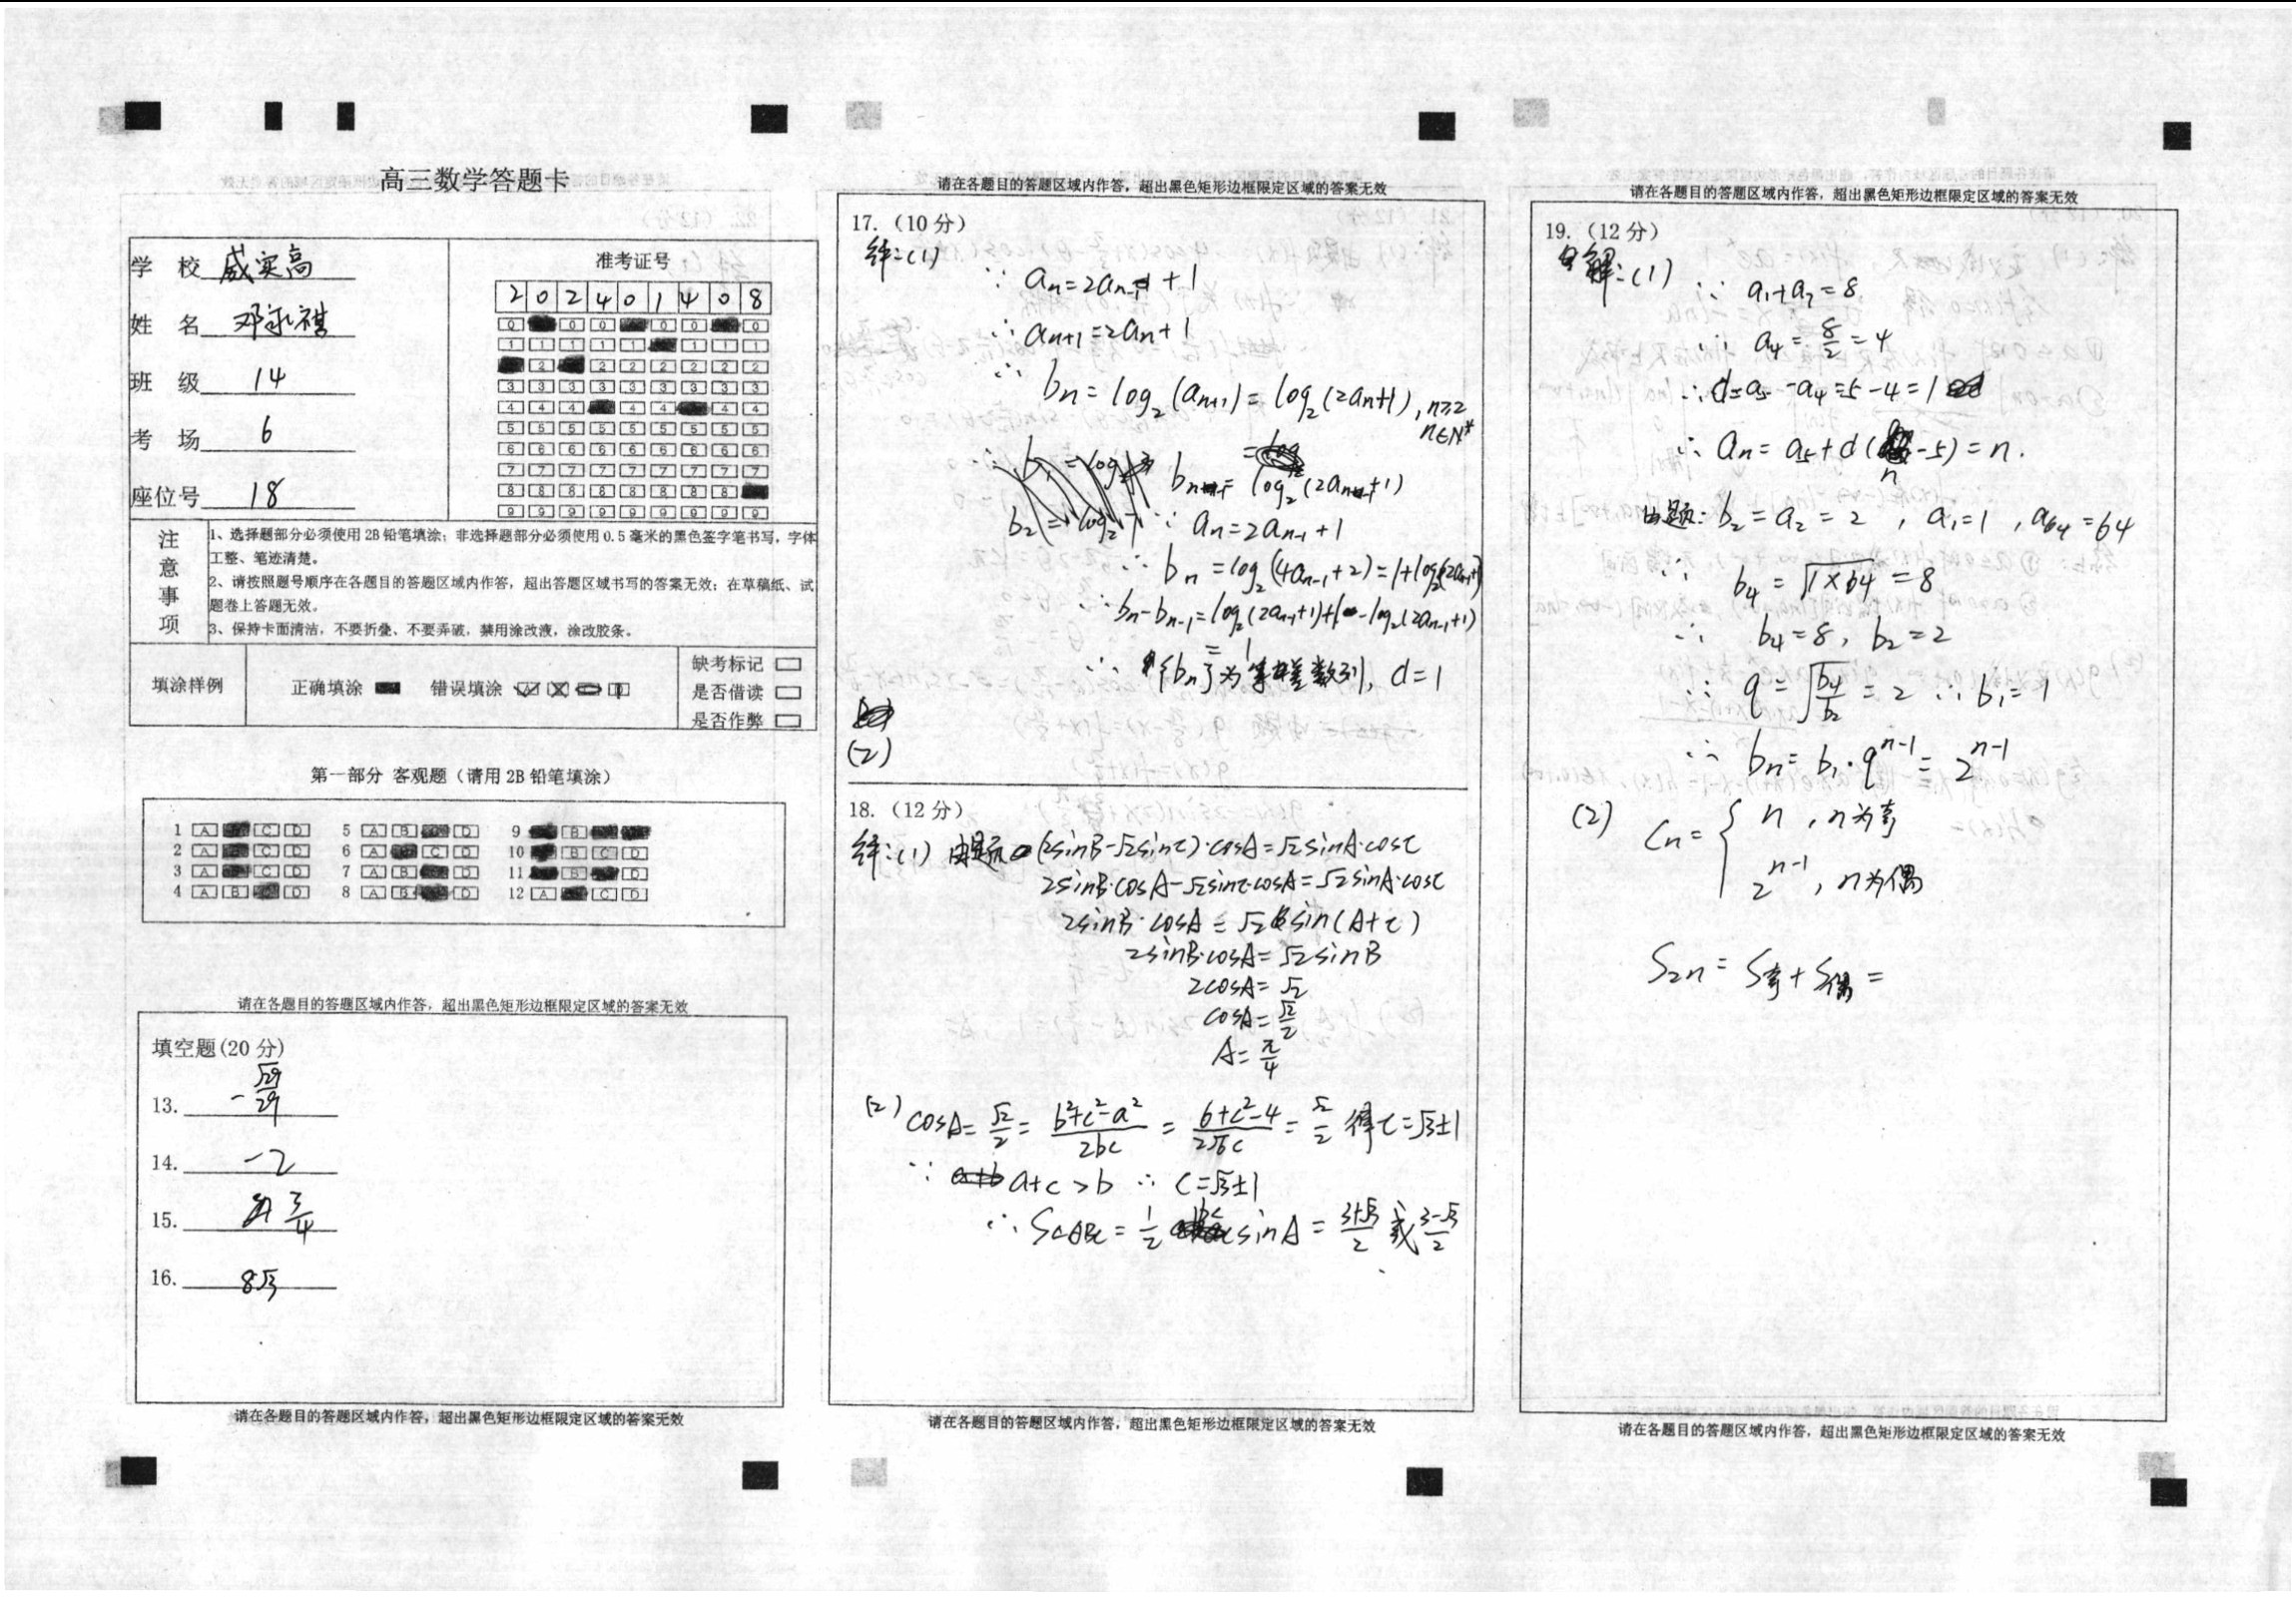 高三数学答题卡
学 校 威实高
姓 名
班 级 14
考 场 6
座位号 18
准考证号
2 0 2 4 0 1 4 0 8
注意事项
1、选择题部分必须使用2B铅笔填涂；非选择题部分必须使用0.5毫米的黑色签字笔书写，字体
工整、笔迹清楚。
2、请按照题号顺序在各题目的答题区域内作答，超出答题区域书写的答案无效；在草稿纸、试
题卷上答题无效。
3、保持卡面清洁，不要折叠、不要弄破，禁用涂改液，涂改胶条。
填涂样例
正确填涂 错误填涂
缺考标记
是否借读
是否作弊
第一部分 客观题（请用2B铅笔填涂）
1 A C D 5 A B D 9 B
2 A C D 6 A C D 10 B C D
3 A C D 7 A B D 11 B D
4 A B D 8 A B D 12 A C D
请在各题目的答题区域内作答，超出黑色矩形边框限定区域的答案无效
填空题(20分)
13. -√29/29
14. -2
15. 3/4
16. 8√3
请在各题目的答题区域内作答，超出黑色矩形边框限定区域的答案无效
请在各题目的答题区域内作答，超出黑色矩形边框限定区域的答案无效
17.（10分）
解:(1)
∵ an=2an-1+1
∴ an+1=2an+1
∴ bn=log2(an+1)=log2(2an+1), n≥2
n∈N*
bn-1=log2(2an-1+1)
∵ an=2an-1+1
∴ bn=log2(4an-1+2)=1+log2(2an-1+1)
∴ bn-bn-1=log2(2an-1+1)+1-log2(2an-1+1)
=1
∴ {bn}为等差数列, d=1
(2)
18.（12分）
解:(1) 由题 (2sinB-√2sinC)·cosA=√2sinA·cosC
2sinB·cosA-√2sinC·cosA=√2sinA·cosC
2sinB·cosA=√2sin(A+C)
2sinB·cosA=√2sinB
2cosA=√2
cosA=√2/2
A=π/4
(2) cosA=√2/2=(b²+c²-a²)/2bc=(6+c²-4)/2√6c=√2/2 得c=√3±1
∵ a+c>b ∴ c=√3±1
∴ S△ABC=1/2 bc sinA=(3+√3)/2 或 (3-√3)/2
请在各题目的答题区域内作答，超出黑色矩形边框限定区域的答案无效
请在各题目的答题区域内作答，超出黑色矩形边框限定区域的答案无效
19.（12分）
解:(1) ∵ a1+a7=8
∴ a4=8/2=4
∴ d=a5-a4=5-4=1
∴ an=a5+d(n-5)=n.
由题: b2=a2=2, a1=1, a64=64
∴ b4=√(1×64)=8
∴ b4=8, b2=2
∴ q=√(b4/b2)=2 ∴ b1=1
∴ bn=b1·q^(n-1)=2^(n-1)
(2) Cn={ n, n为奇
2^(n-1), n为偶
S2n=S奇+S偶=
请在各题目的答题区域内作答，超出黑色矩形边框限定区域的答案无效